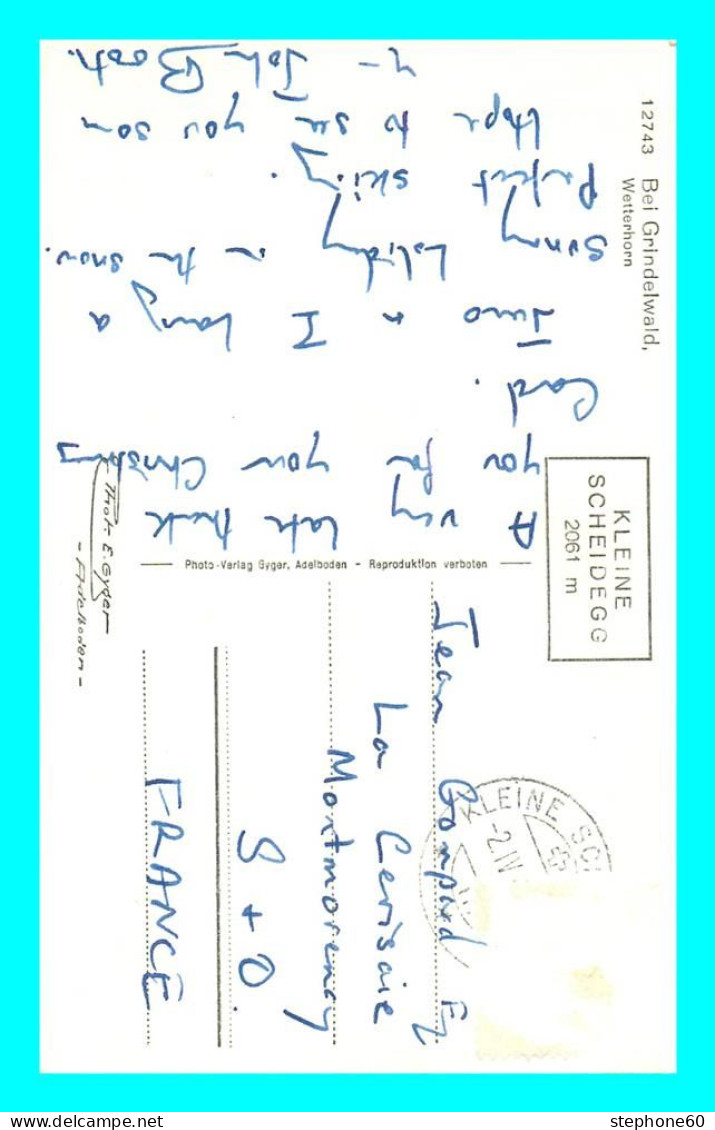 12743 Bei Grindelwald,
Wetterhorn
A very late thank
you for your Christmas
Card.
I having a
Sunny holiday in the snow.
Perfect skiing.
Hope to see you soon
KLEINE
SCHEIDEGG
2061 m
Photo-Verlag Gyger, Adelboden - Reproduktion verboten
Phot. E. Gyger
- Adelboden -
KLEINE SCH
-2.IV
Jean
La Cerisaie
Montmorency
S + O
FRANCE
stephone60